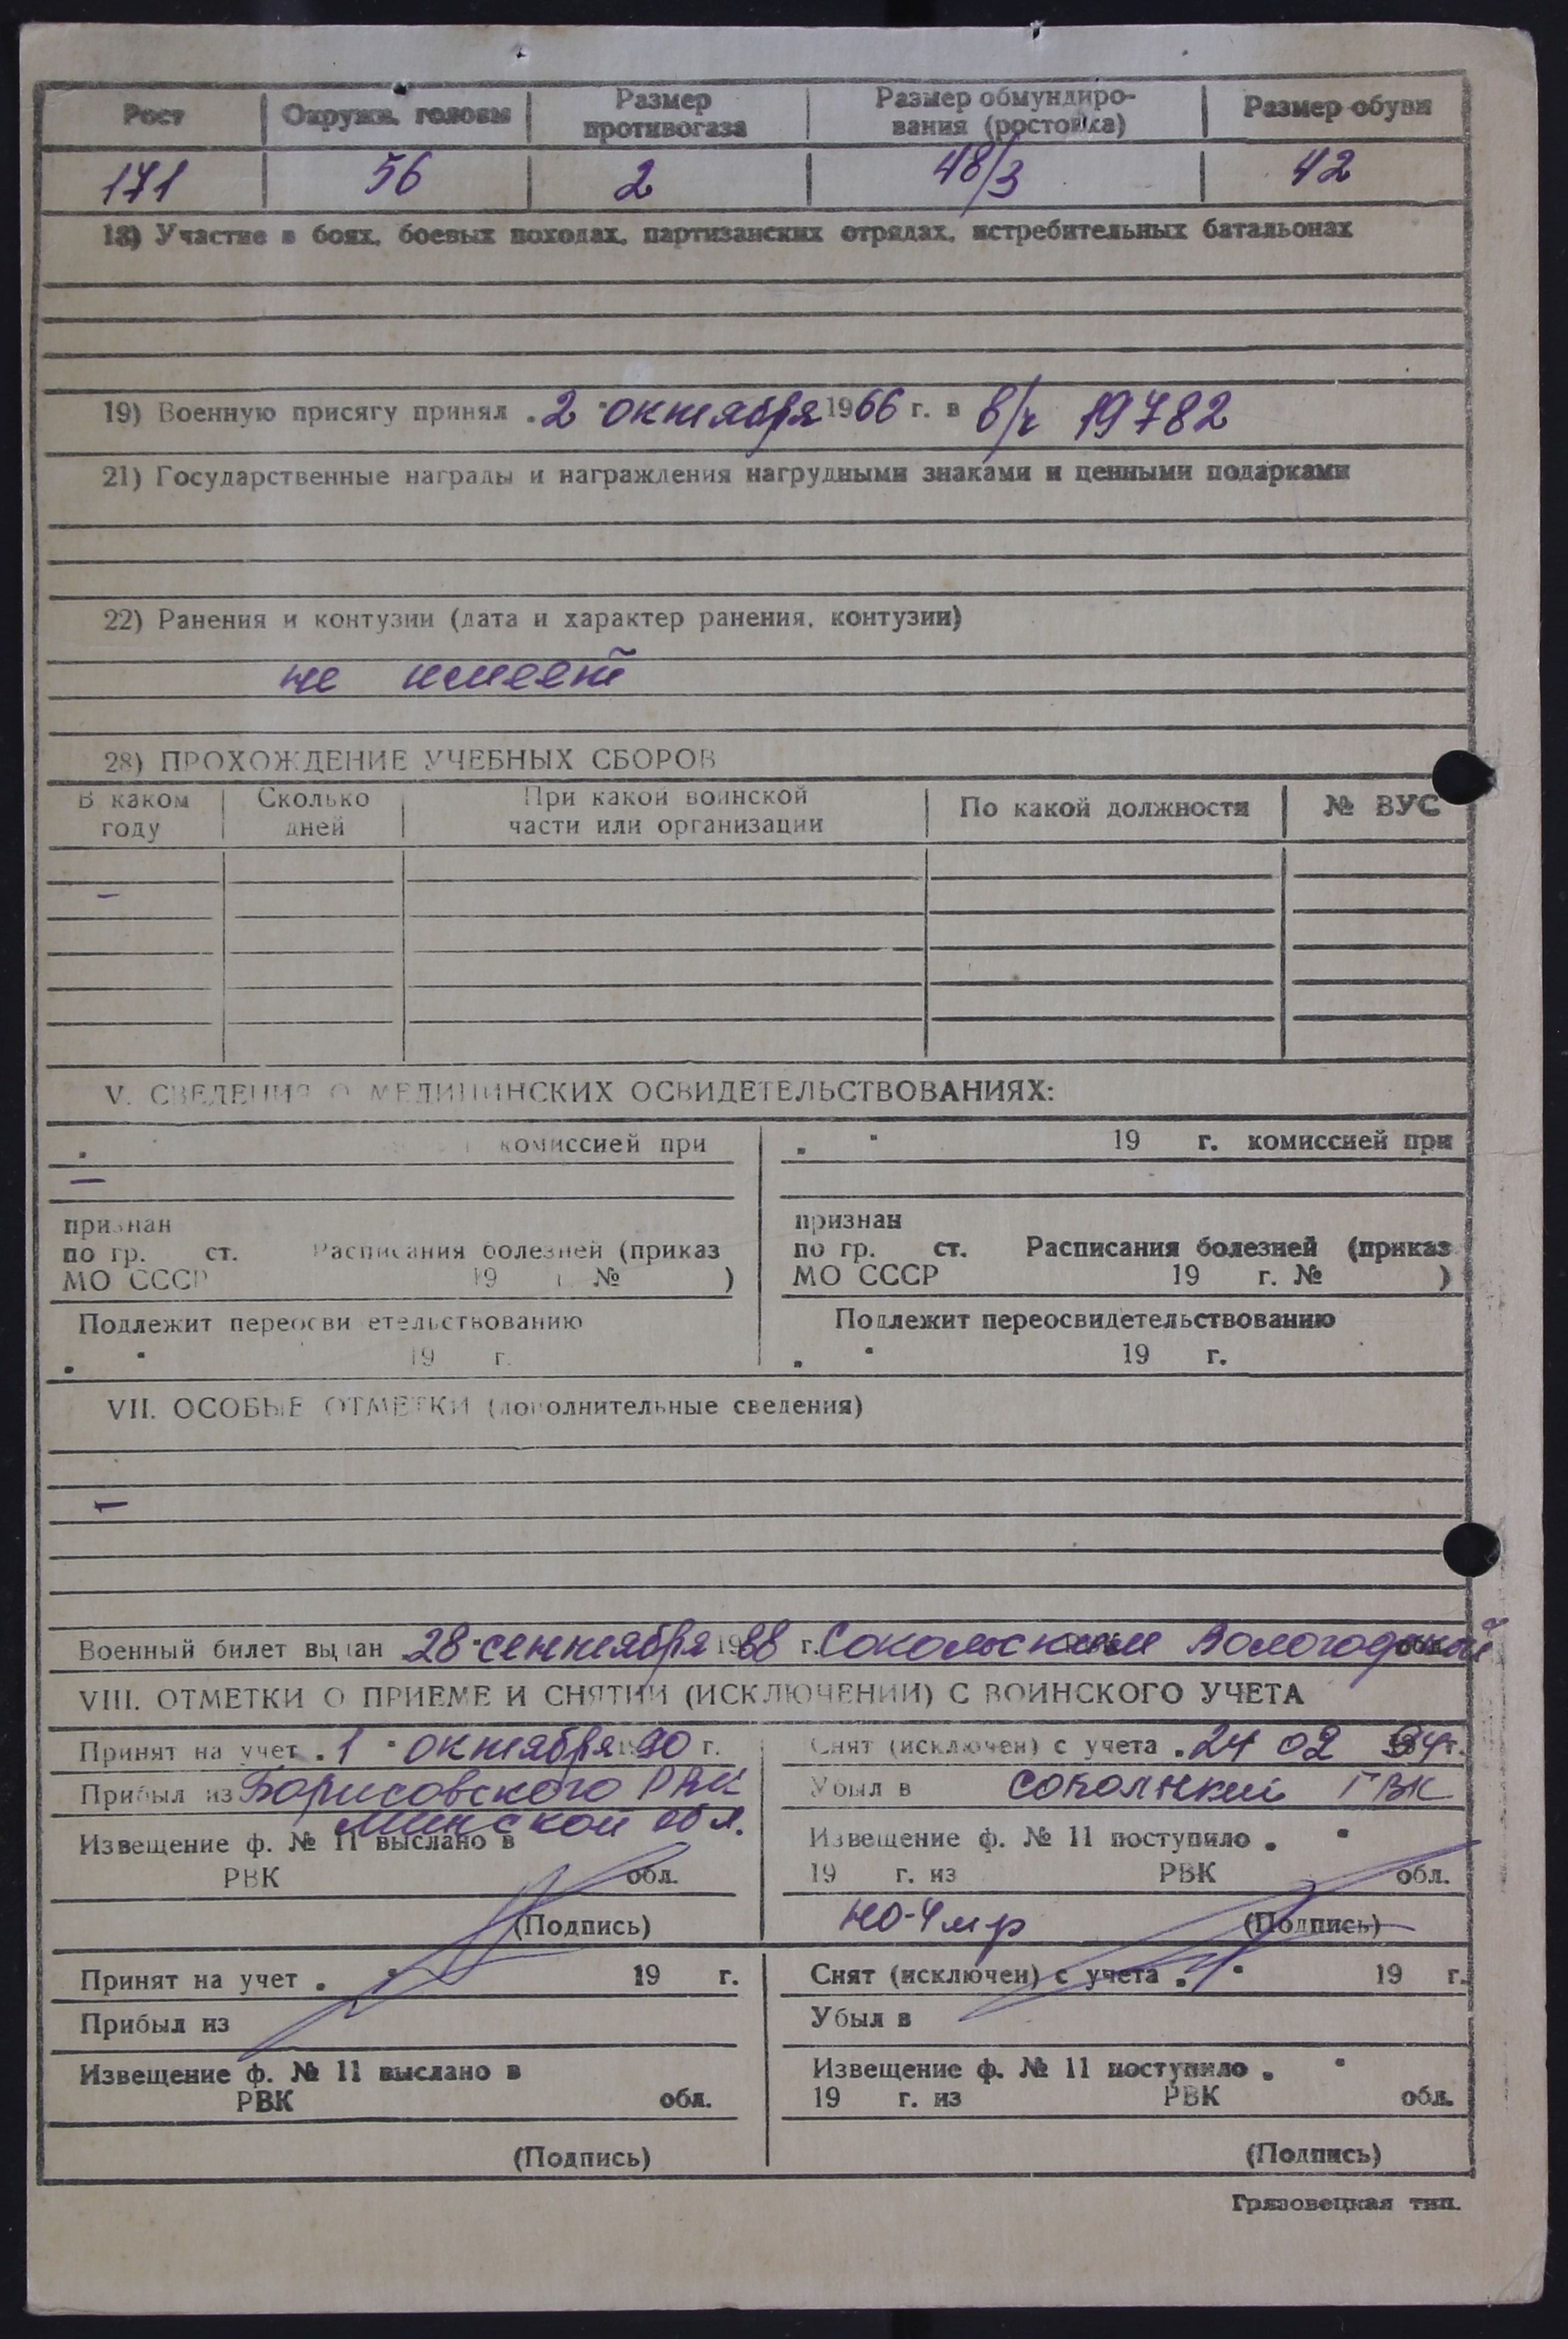 Рост Окружн. головы Размер противогаза Размер обмундиро-вания (ростовка) Размер обуви
171 56 2 48/3 42
18) Участие в боях, боевых походах, партизанских отрядах, истребительных батальонах
19) Военную присягу принял 2 октября 1966 г. в в/ч 19782
21) Государственные награды и награждения нагрудными знаками и ценными подарками
22) Ранения и контузии (дата и характер ранения, контузии)
не имеет
28) ПРОХОЖДЕНИЕ УЧЕБНЫХ СБОРОВ
В каком году Сколько дней При какой воинской части или организации По какой должности № ВУС
–
V. СВЕДЕНИЯ О МЕДИЦИНСКИХ ОСВИДЕТЕЛЬСТВОВАНИЯХ:
комиссией при
–
признан
по гр. ст. Расписания болезней (приказ
МО СССР 19 г. № )
Подлежит переосвидетельствованию
19 г.
19 г. комиссией при
признан
по гр. ст. Расписания болезней (приказ
МО СССР 19 г. № )
Подлежит переосвидетельствованию
19 г.
VII. ОСОБЫЕ ОТМЕТКИ (дополнительные сведения)
–
Военный билет выдан 28 сентября 19 г. Сокольским Вологодской обл.
VIII. ОТМЕТКИ О ПРИЕМЕ И СНЯТИИ (ИСКЛЮЧЕНИИ) С ВОИНСКОГО УЧЕТА
Принят на учет 1 октября 1990 г.
Прибыл из Борисовского РВК
Минской обл.
Извещение ф. № 11 выслано в
РВК обл.
(Подпись)
Снят (исключен) с учета 24 02 г.
Убыл в ГВК
Извещение ф. № 11 поступило
19 г. из РВК обл.
(Подпись)
Принят на учет 19 г.
Прибыл из
Извещение ф. № 11 выслано в
РВК обл.
(Подпись)
Снят (исключен) с учета 19 г.
Убыл в
Извещение ф. № 11 поступило
19 г. из РВК обл.
(Подпись)
Грязовецкая тип.